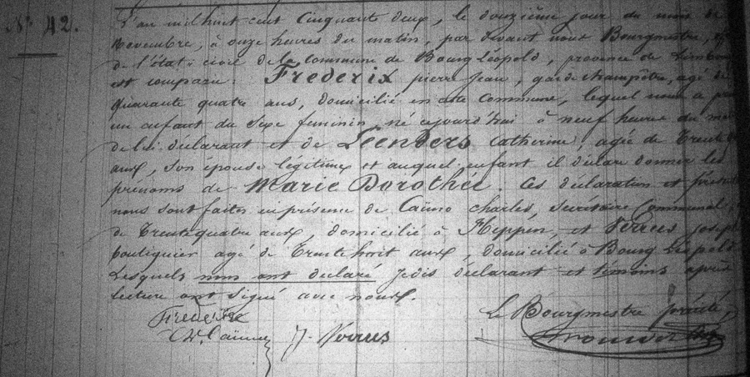 N° 42.
L'an mil huit cent cinquante deux, le douzième jour du mois de
Novembre, à onze heures du matin, par devant nous Bourgmestre,
de l'état civil de la commune de Bourg Léopold, province de Limbourg
est comparu: Frederix pierre Jean, garde champêtre, agé de
quarante quatre ans, domicilié en cette Commune, lequel nous a
un enfant du Sexe feminin, né cejourd'hui à neuf heures du
de lui déclarant et de Leenders Catherine, agée de trente
ans, son épouse légitime et auquel enfant il déclare donner les
prénoms de Marie Dorothée. Ces déclaration et
nous sont faites en présence de Caüno charles, Secrétaire Communal,
de trentequatre ans, domicilié à Heppen, et Verres Joseph
boutiquier agé de trentehuit ans, domicilié à Bourg Léopold
Lesquels nous ont déclaré déclarant et temoins après
lecture ont signé avec nous.
Frederix
Le Bourgmestre
Ch. Caüno
J. Verres